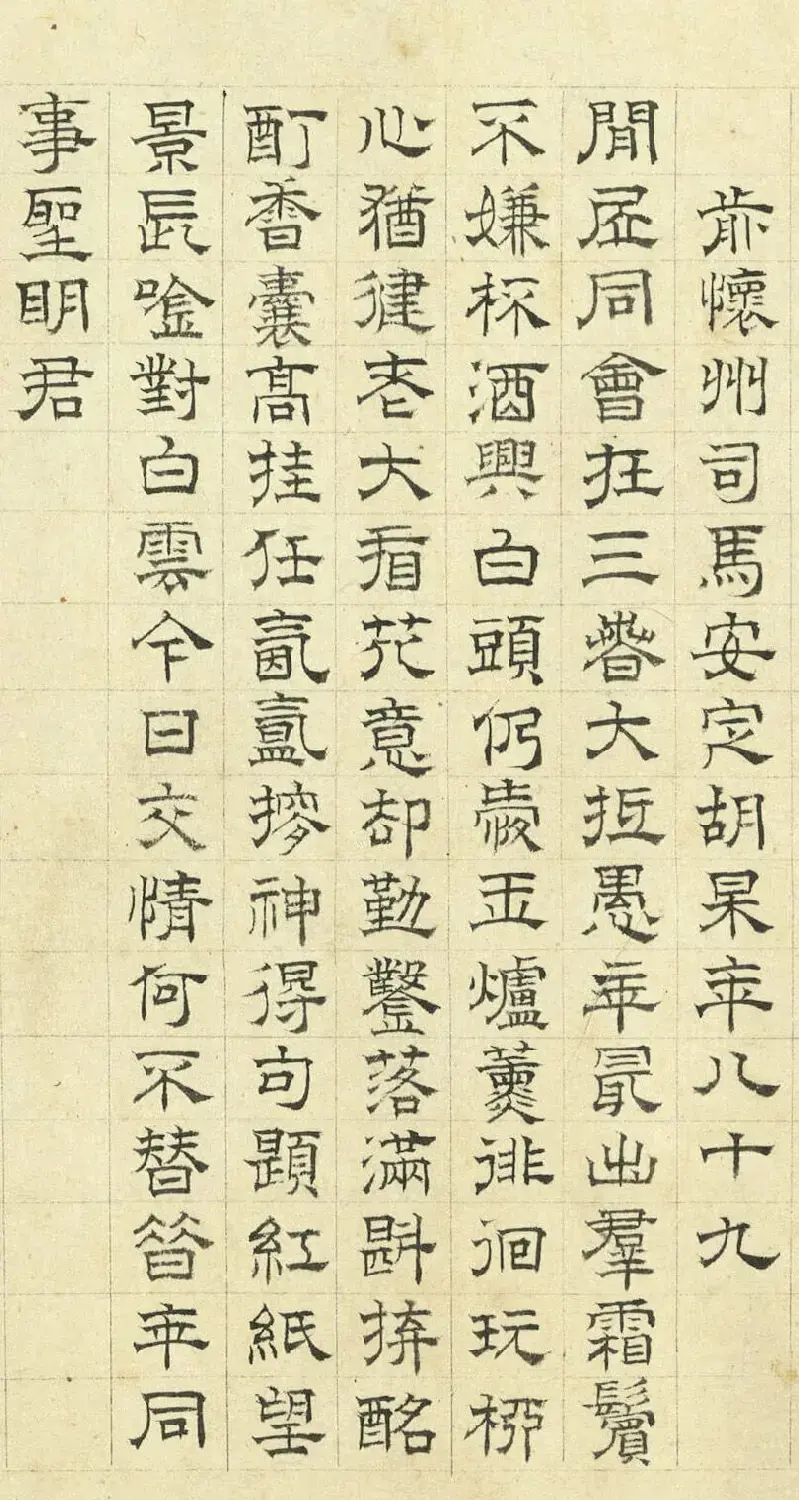 前懷州司馬安定胡杲年八十九
閒居同會在三春大抵愚年最出羣霜鬢
不嫌杯酒興白頭仍愛玉爐薰徘徊玩柳
心猶健老大看花意却勤鑿落滿斟拚酩
酊香囊高挂任氤氳搜神得句題紅紙望
景長吟對白雲今日交情何不替昔年同
事聖明君